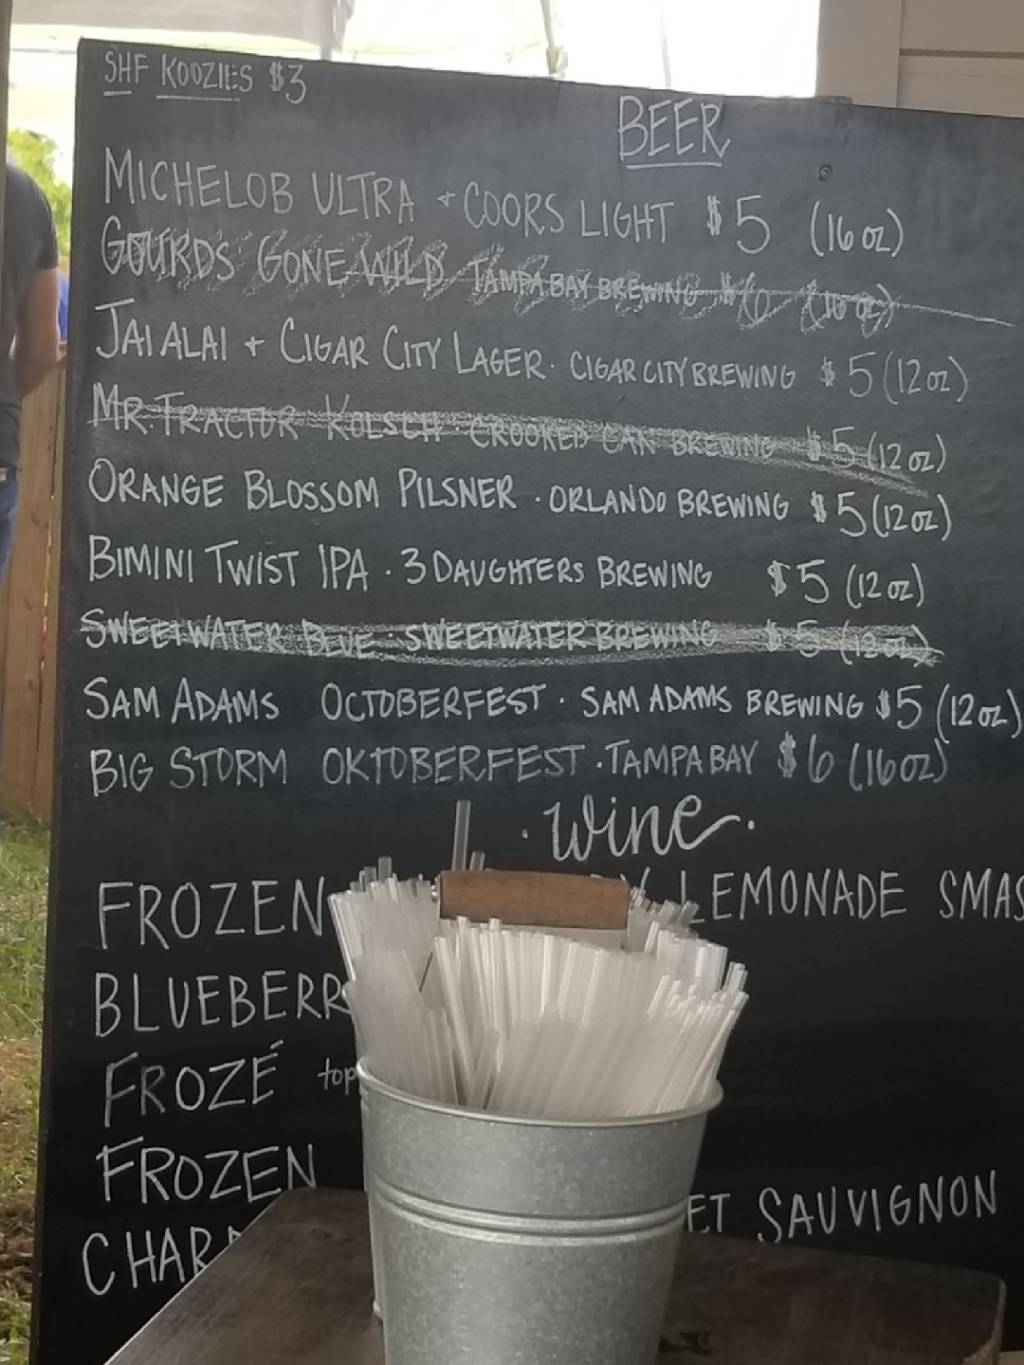 SHF KOOZIES $3
BEER
MICHELOB ULTRA + COORS LIGHT $5 (16 oz)
GOURDS GONE WILD TAMPA BAY BREWING $6 (16 oz)
JAI ALAI + CIGAR CITY LAGER · CIGAR CITY BREWING $5 (12 oz)
MR. TRACTOR KOLSCH · CROOKED CAN BREWING $5 (12 oz)
ORANGE BLOSSOM PILSNER · ORLANDO BREWING $5 (12 oz)
BIMINI TWIST IPA · 3 DAUGHTERS BREWING $5 (12 oz)
SWEETWATER BLUE · SWEETWATER BREWING $5 (12 oz)
SAM ADAMS OCTOBERFEST · SAM ADAMS BREWING $5 (12 oz)
BIG STORM OKTOBERFEST · TAMPA BAY $6 (16 oz)
· wine ·
FROZEN LEMONADE SMAS
BLUEBERR
FROZÉ top
FROZEN
CHAR ET SAUVIGNON